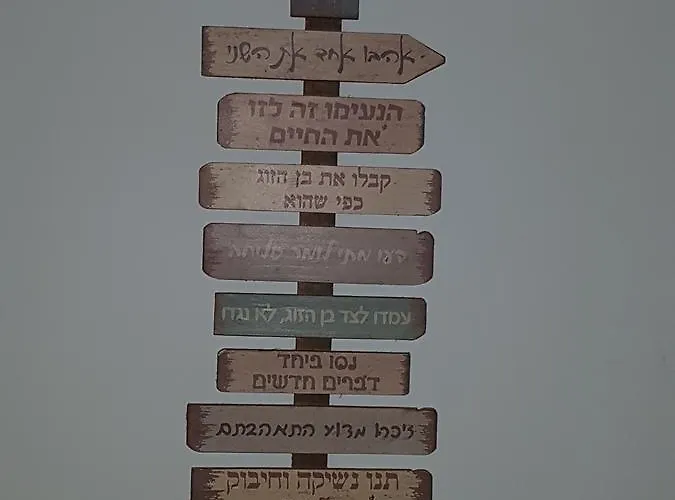 אהבו אחד את השני
הנעימו זה לזו
את החיים
קבלו את בן הזוג
כפי שהוא
דעו מתי לומר סליחה
עמדו לצד בן הזוג, לא נגדו
נסו ביחד
דברים חדשים
זיכרו מדוע התאהבתם
תנו נשיקה וחיבוק